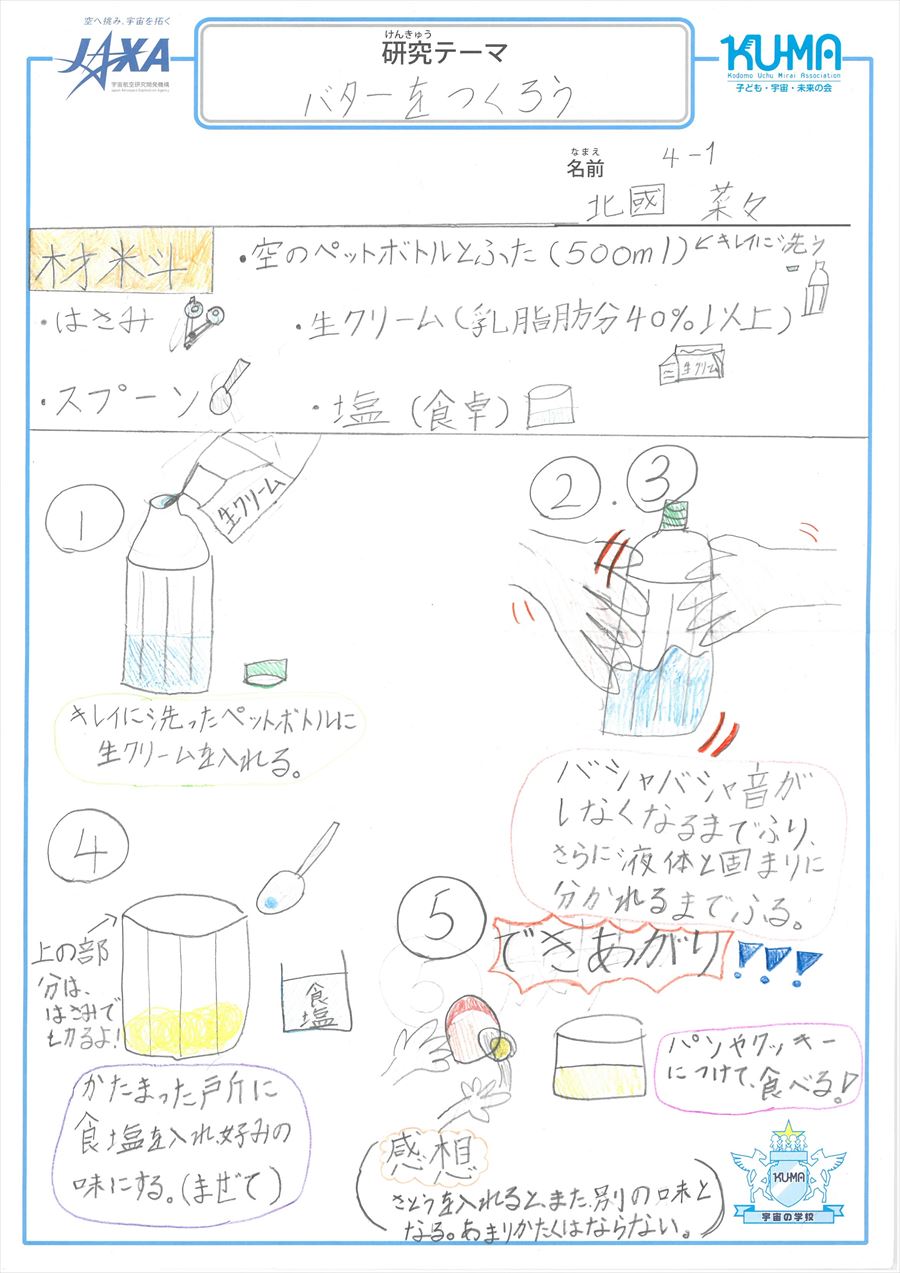 空へ挑み、宇宙を拓く
JAXA
宇宙航空研究開発機構
Japan Aerospace Exploration Agency
けんきゅう
研究テーマ
バターをつくろう
KU-MA
Kodomo Uchu Mirai Association
子ども・宇宙・未来の会
なまえ
名前
4-1
北國 菜々
材料
・空のペットボトルとふた(500ml)←キレイに洗う
・はさみ
・生クリーム(乳脂肪分40%以上)
生クリーム
・スプーン
・塩(食卓)
①
生クリーム
キレイに洗ったペットボトルに
生クリームを入れる。
②.③
バシャバシャ音が
しなくなるまでふり、
さらに液体と固まりに
分かれるまでふる。
④
上の部
分は、
はさみで
切るよ!
食塩
かたまった戸斤に
食塩を入れ、好みの
味にする。(まぜて)
⑤
できあがり!!!
パンやクッキー
につけて、食べる。!
感想
さとうを入れると、また別の味と
なる。あまりかたくはならない。
KU-MA
宇宙の学校